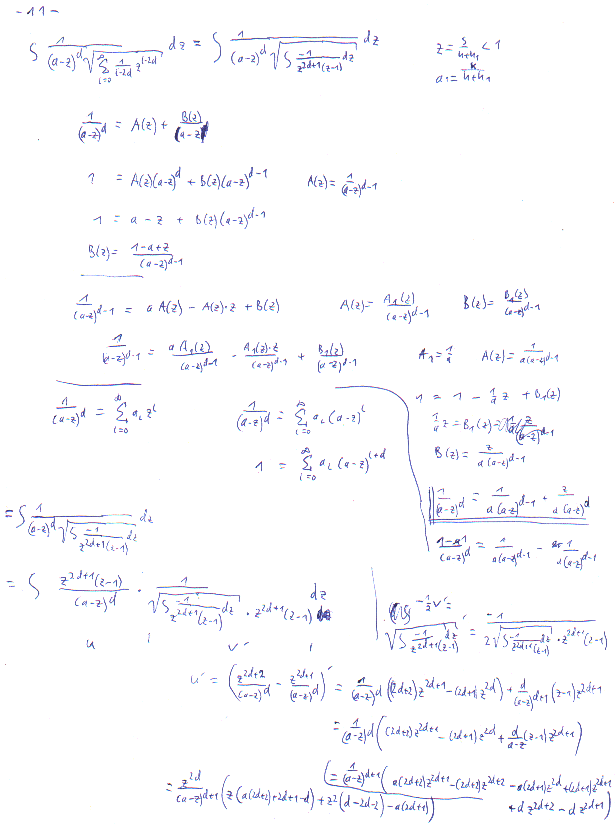 -11-
∫ 1/((a-z)^d √(∑_{i=0}^∞ 1/(i-2d) z^{i-2d})) dz = ∫ 1/((a-z)^d √(∫ -1/(z^{2d+1}(z-1)) dz)) dz
z = s/(h+h₁) < 1
a₁ = k/(h+h₁)
1/(a-z)^d = A(z) + B(z)/(a-z)
1 = A(z)(a-z)^d + B(z)(a-z)^{d-1}   A(z) = 1/(a-z)^{d-1}
1 = a - z + B(z)(a-z)^{d-1}
B(z) = (1-a+z)/(a-z)^{d-1}
1/(a-z)^{d-1} = a A(z) - A(z)·z + B(z)   A(z) = A₁(z)/(a-z)^{d-1}   B(z) = B₁(z)/(a-z)^{d-1}
1/(a-z)^{d-1} = a A₁(z)/(a-z)^{d-1} - A₁(z)·z/(a-z)^{d-1} + B₁(z)/(a-z)^{d-1}   A₁ = 1/a   A(z) = 1/(a(a-z)^{d-1})
1 = 1 - 1/a z + B₁(z)
1/(a-z)^d = ∑_{i=0}^∞ a_i z^i   1/(a-z)^d = ∑_{i=0}^∞ a_i (a-z)^i
1/a z = B₁(z) =
1 = ∑_{i=0}^∞ a_i (a-z)^{i+d}
B(z) = z/(a(a-z)^{d-1})
1/(a-z)^d = 1/(a(a-z)^{d-1}) + z/(a(a-z)^d)
= ∫ 1/((a-z)^d √(∫ -1/(z^{2d+1}(z-1)) dz)) dz
= ∫ z^{2d+1}(z-1)/(a-z)^d · 1/(√(∫ -1/(z^{2d+1}(z-1)) dz) · z^{2d+1}(z-1)) dz
u   v'
-1/2 v' =
= -1/(2√(∫ -1/(z^{2d+1}(z-1)) dz) · z^{2d+1}(z-1))
u' = (z^{2d+2}/(a-z)^d - z^{2d+1}/(a-z)^d)' = 1/(a-z)^d ((2d+2)z^{2d+1} - (2d+1)z^{2d}) + d/(a-z)^{d+1} (z-1)z^{2d+1}
= 1/(a-z)^d ((2d+2)z^{2d+1} - (2d+1)z^{2d} + d/(a-z) (z-1)z^{2d+1})
(= 1/(a-z)^{d+1} (a(2d+2)z^{2d+1} - (2d+2)z^{2d+2} - a(2d+1)z^{2d} + (2d+1)z^{2d+1}
+ d z^{2d+2} - d z^{2d+1})
= z^{2d}/(a-z)^{d+1} (z(a(2d+2)+2d+1-d) + z²(d-2d-2) - a(2d+1))